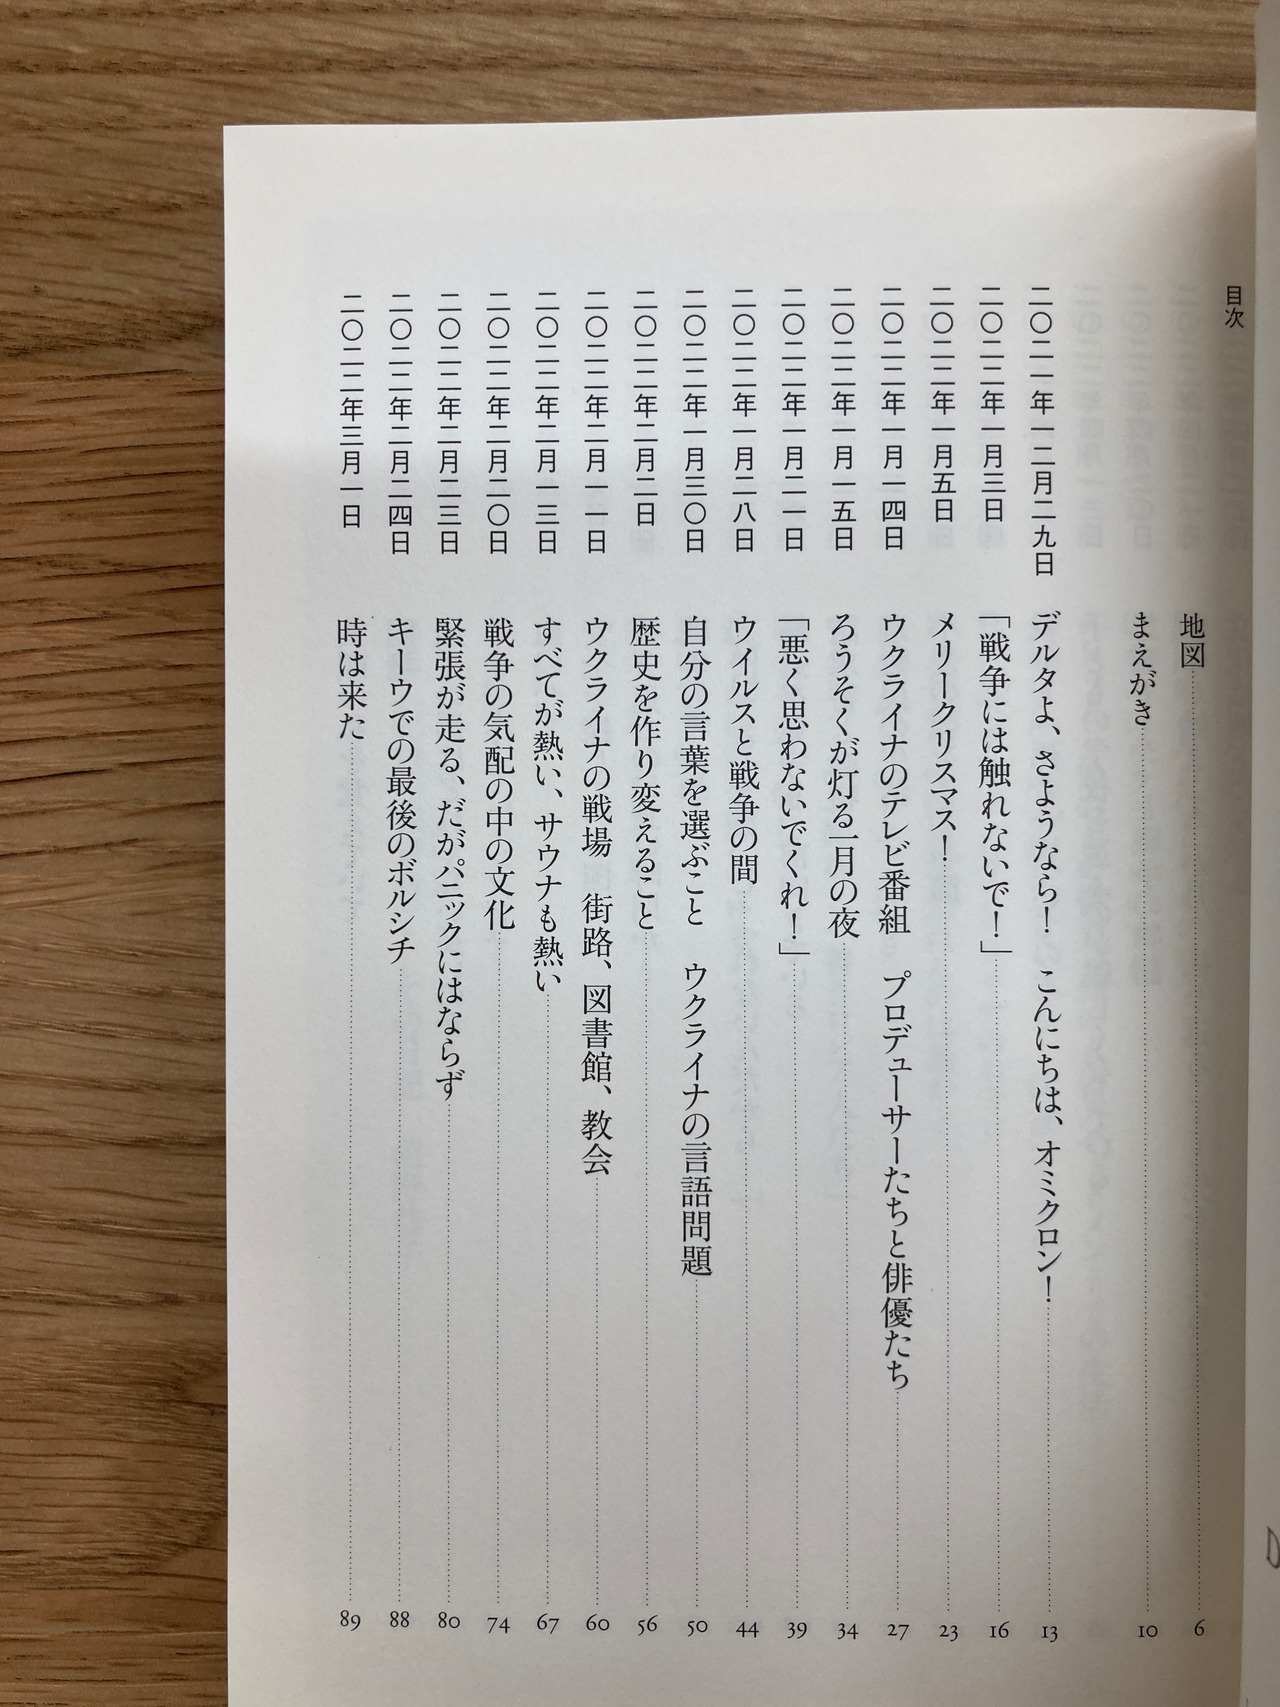 目次
地図 6
まえがき 10
二〇二一年一二月二九日 デルタよ、さようなら！ こんにちは、オミクロン！ 13
二〇二二年一月三日 「戦争には触れないで！」 16
二〇二二年一月五日 メリークリスマス！ 23
二〇二二年一月一四日 ウクライナのテレビ番組 プロデューサーたちと俳優たち 27
二〇二二年一月一五日 ろうそくが灯る一月の夜 34
二〇二二年一月二一日 「悪く思わないでくれ！」 39
二〇二二年一月二八日 ウイルスと戦争の間 44
二〇二二年一月三〇日 自分の言葉を選ぶこと ウクライナの言語問題 50
二〇二二年二月二日 歴史を作り変えること 56
二〇二二年二月一一日 ウクライナの戦場 街路、図書館、教会 60
二〇二二年二月一三日 すべてが熱い、サウナも熱い 67
二〇二二年二月二〇日 戦争の気配の中の文化 74
二〇二二年二月二三日 緊張が走る、だがパニックにはならず 80
二〇二二年二月二四日 キーウでの最後のボルシチ 88
二〇二二年三月一日 時は来た 89